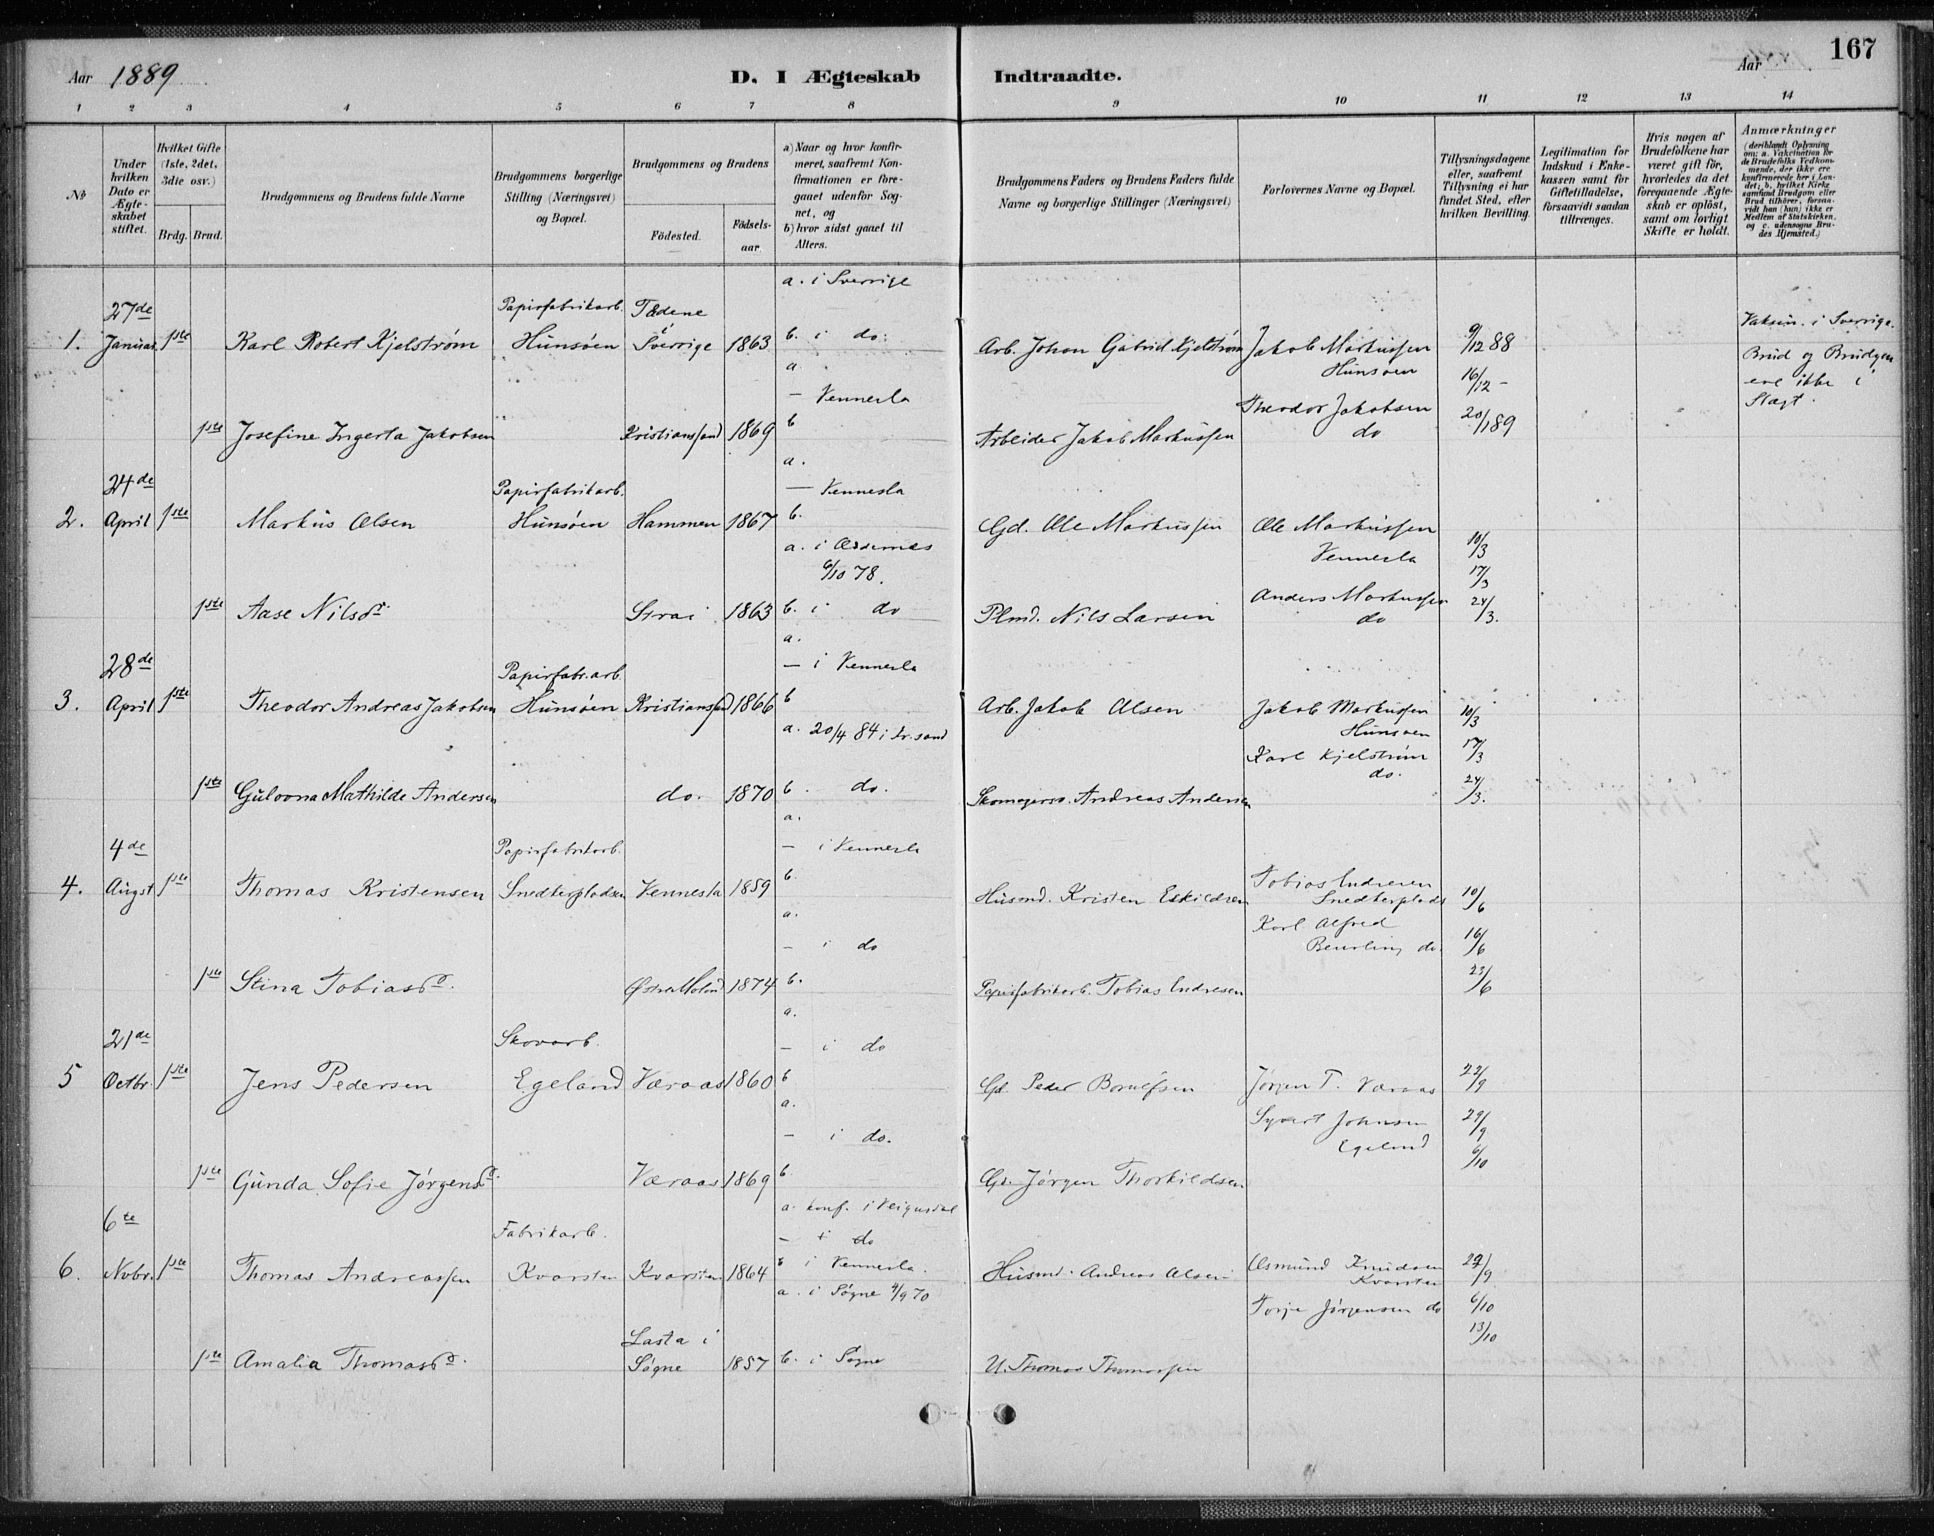 167
Aar 1889 D. I Ægteskab Indtraadte. Aar
1 2 3 4 5 6 7 8 9 10 11 12 13 14
№
Under hvilken Dato er Ægteskabet stiftet.
Hvilket Gifte (1ste, 2det, 3die osv.)
Brdg. Brud.
Brudgommens og Brudens fulde Navne
Brudgommens borgerlige Stilling (Næringsvei) og Bopæl.
Brudgommens og Brudens
Fødested. Fødselsaar.
a) Naar og hvor konfirmeret, saafremt Konfirmationen er foregaaet udenfor Sognet, og
b) hvor sidst gaaet til Alters.
Brudgommens Faders og Brudens Faders fulde Navne og borgerlige Stillinger (Næringsvei)
Forlovernes Navne og Bopæl.
Tillysningsdagene eller, saafremt Tillysning ei har fundet Sted, efter hvilken Bevilling.
Legitimation for Indskud i Enkekassen samt for Giftetilladelse, forsaavidt saadan tiltrænges.
Hvis nogen af Brudefolkene har været gift før, hvorledes da det foregaaende Ægteskab er opløst, samt om lovligt Skifte er holdt.
Anmærkninger (deriblandt Oplysning om: a. Vakcination for de Brudefolks Vedkommende, der ikke ere konfirmerede her i Landet; b. hvilket Kirkesamfund Brudgom eller Brud tilhører, forsaavidt han (hun) ikke er Medlem af Statskirken, og c. udensogns Brudes Hjemsted.)
a. i Sverrige
27de Papirfabrikarb. Tødene
1. Januar 1ste Karl Robert Kjelstrøm Hunsøen i Sverrige 1863 b. i do Arb. Johan Gabriel Kjelstrøm Jakob Markussen 9/12 88 Vaksin. i Sverrige.
a. Hunsøen 16/12 - Brud og Brudgom
– Vennesla ere ikke i
Theodor Jakobsen 20/1 89 Slægt.
1ste Josefine Ingerta Jakobsen Kristianssand 1869 b Arbeider Jakob Markussen do
a.
24de Papirfabrikarb. – Vennesla
2. April 1ste Markus Olsen Hunsøen Hammen 1867 b. Gd. Ole Markussen Ole Markussen 10/3
a. i Oddernes Vennesla 17/3
6/10 78.
1ste Aase Nilsd. Strai 1863 b. i do Plmd. Nils Larsen Anders Markussen do 24/3.
a.
28de Papirfabr.arb. – i Vennesla
3. April 1ste Theodor Andreas Jakobsen Hunsøen Kristianssd 1866 b Arb. Jakob Olsen Jakob Markussen 10/3
a. 20/4 84 i Kr.sand Hunsøen
Karl Kjelstrøm 17/3
do.
1ste Gulovna Mathilde Andersen do. 1870 b. do. Skomagersv. Andreas Andersen 24/3.
a.
4de Papirfabrikarb. – i Vennesla
4. Augst 1ste Thomas Kristensen Snedkerpladsen Vennesla 1859 b. Husmd. Kristen Eskildsen Tobias Endresen 10/6
a. Snedkerplads
– i do Karl Alfred 16/6
Beurling do.
1ste Stina Tobiasd. Østre Moland 1874 b. Papirfabrikarb. Tobias Endresen 23/6
a.
21de Skovarb. – i do
5 Octbr. 1ste Jens Pedersen Egeland Væraas 1860 b Gd. Peder Jørgen T. Væraas 22/9
a. Syvert Johnsen 29/9
– i do. Egeland 6/10
1ste Gunda Sofie Jørgensd. Væraas 1869 b Gd. Jørgen Thorkildsen
a. konf. i Veigusdal
6te Fabrikarb. – i do
6. Nvbr. 1ste Thomas Andreassen Kvarsten Kvarsten 1864 b i Vennesla. Husmd. Andreas Olsen Osmund Knudsen 29/9
a. i Søgne 4/9 70 Kvarsten
Torje Jørgensen do 6/10
Lasta i 13/10
1ste Amalia Thomasd. Søgne 1857 b. i Søgne U. Thomas Thomassen